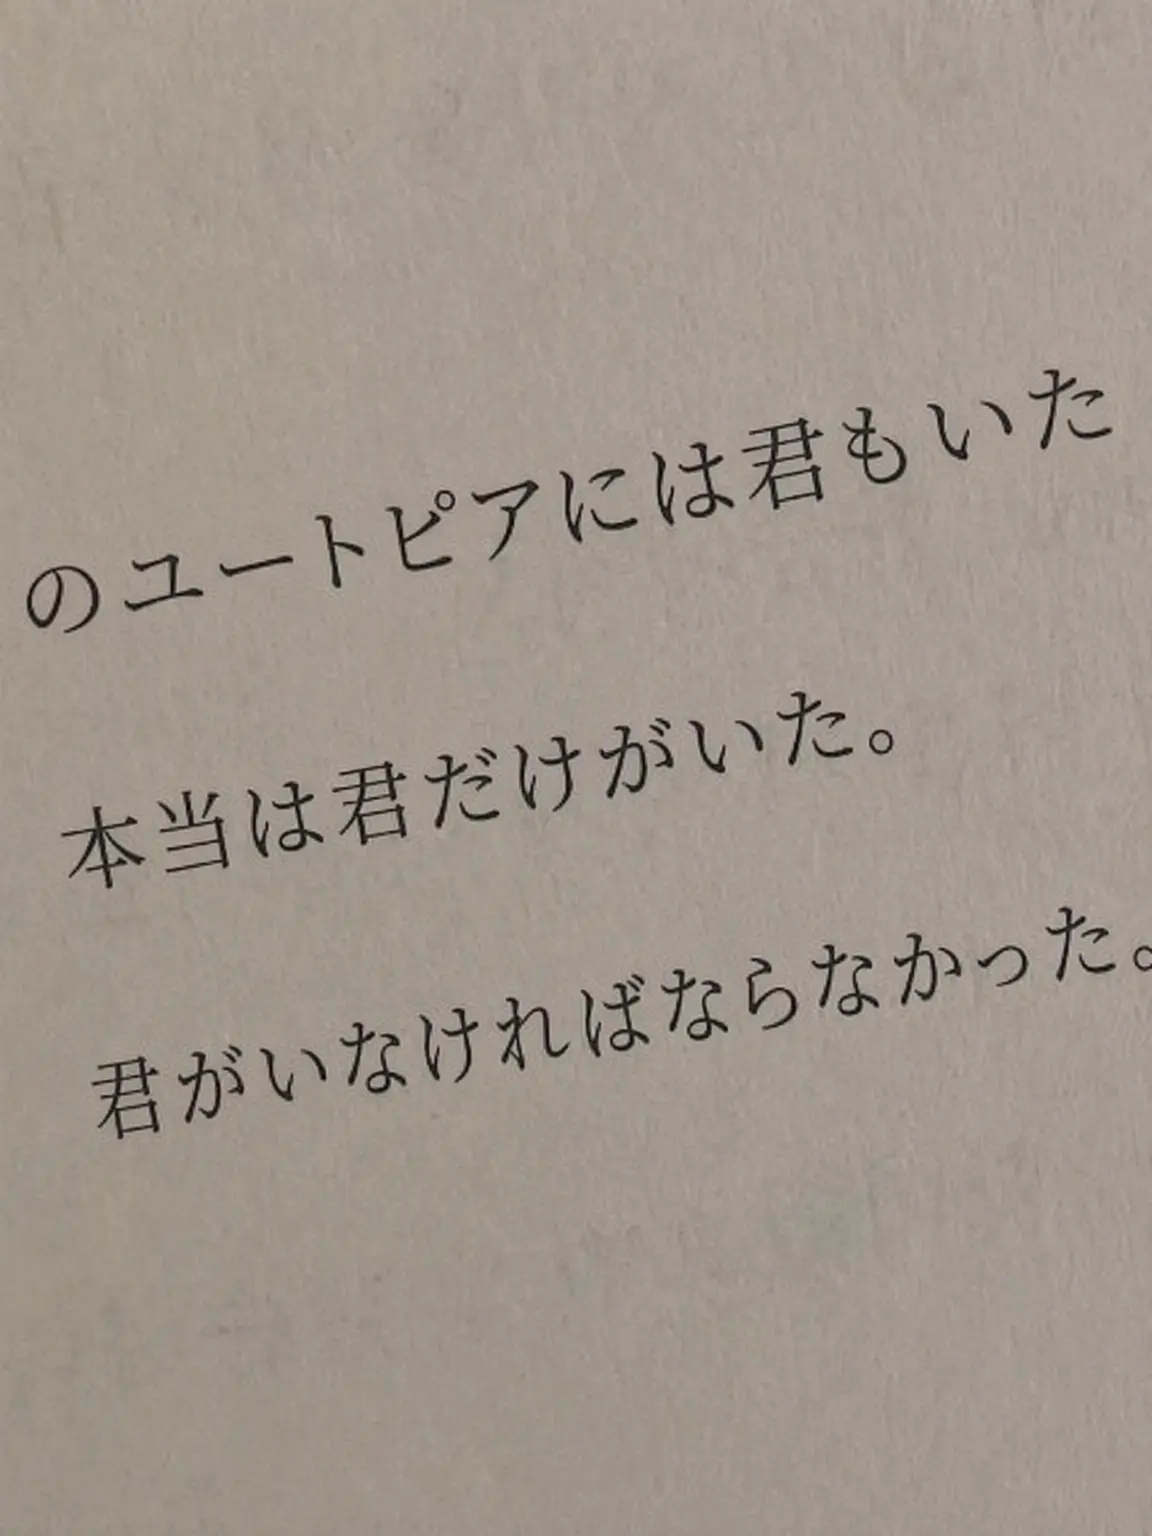 のユートピアには君もいた
本当は君だけがいた。
君がいなければならなかった。